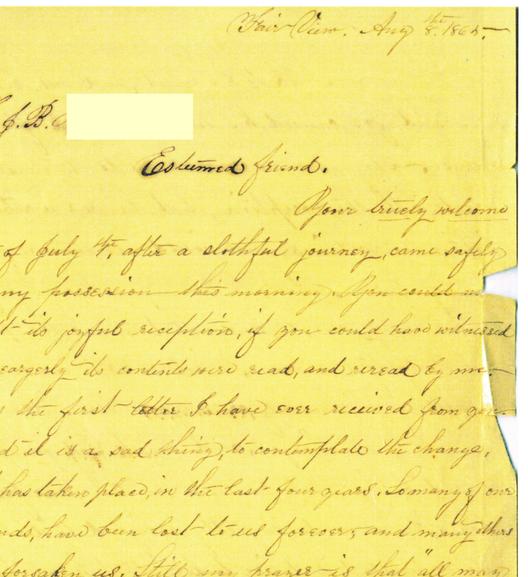 Fair View. Aug 8th. 1865.
J. B.
Esteemed friend.
Your truely welcome
of July 4th, after a slothful journey, came safely
my possession this morning. You could
its joyful reception, if you could have witnessed
eargerly its contents were read, and reread by me
the first letter I have ever received from you
it is a sad thing, to contemplate the change,
has taken place, in the last four years. So many of our
have been lost to us forever, and many others
forsaken us. Still my prayer is that "all may